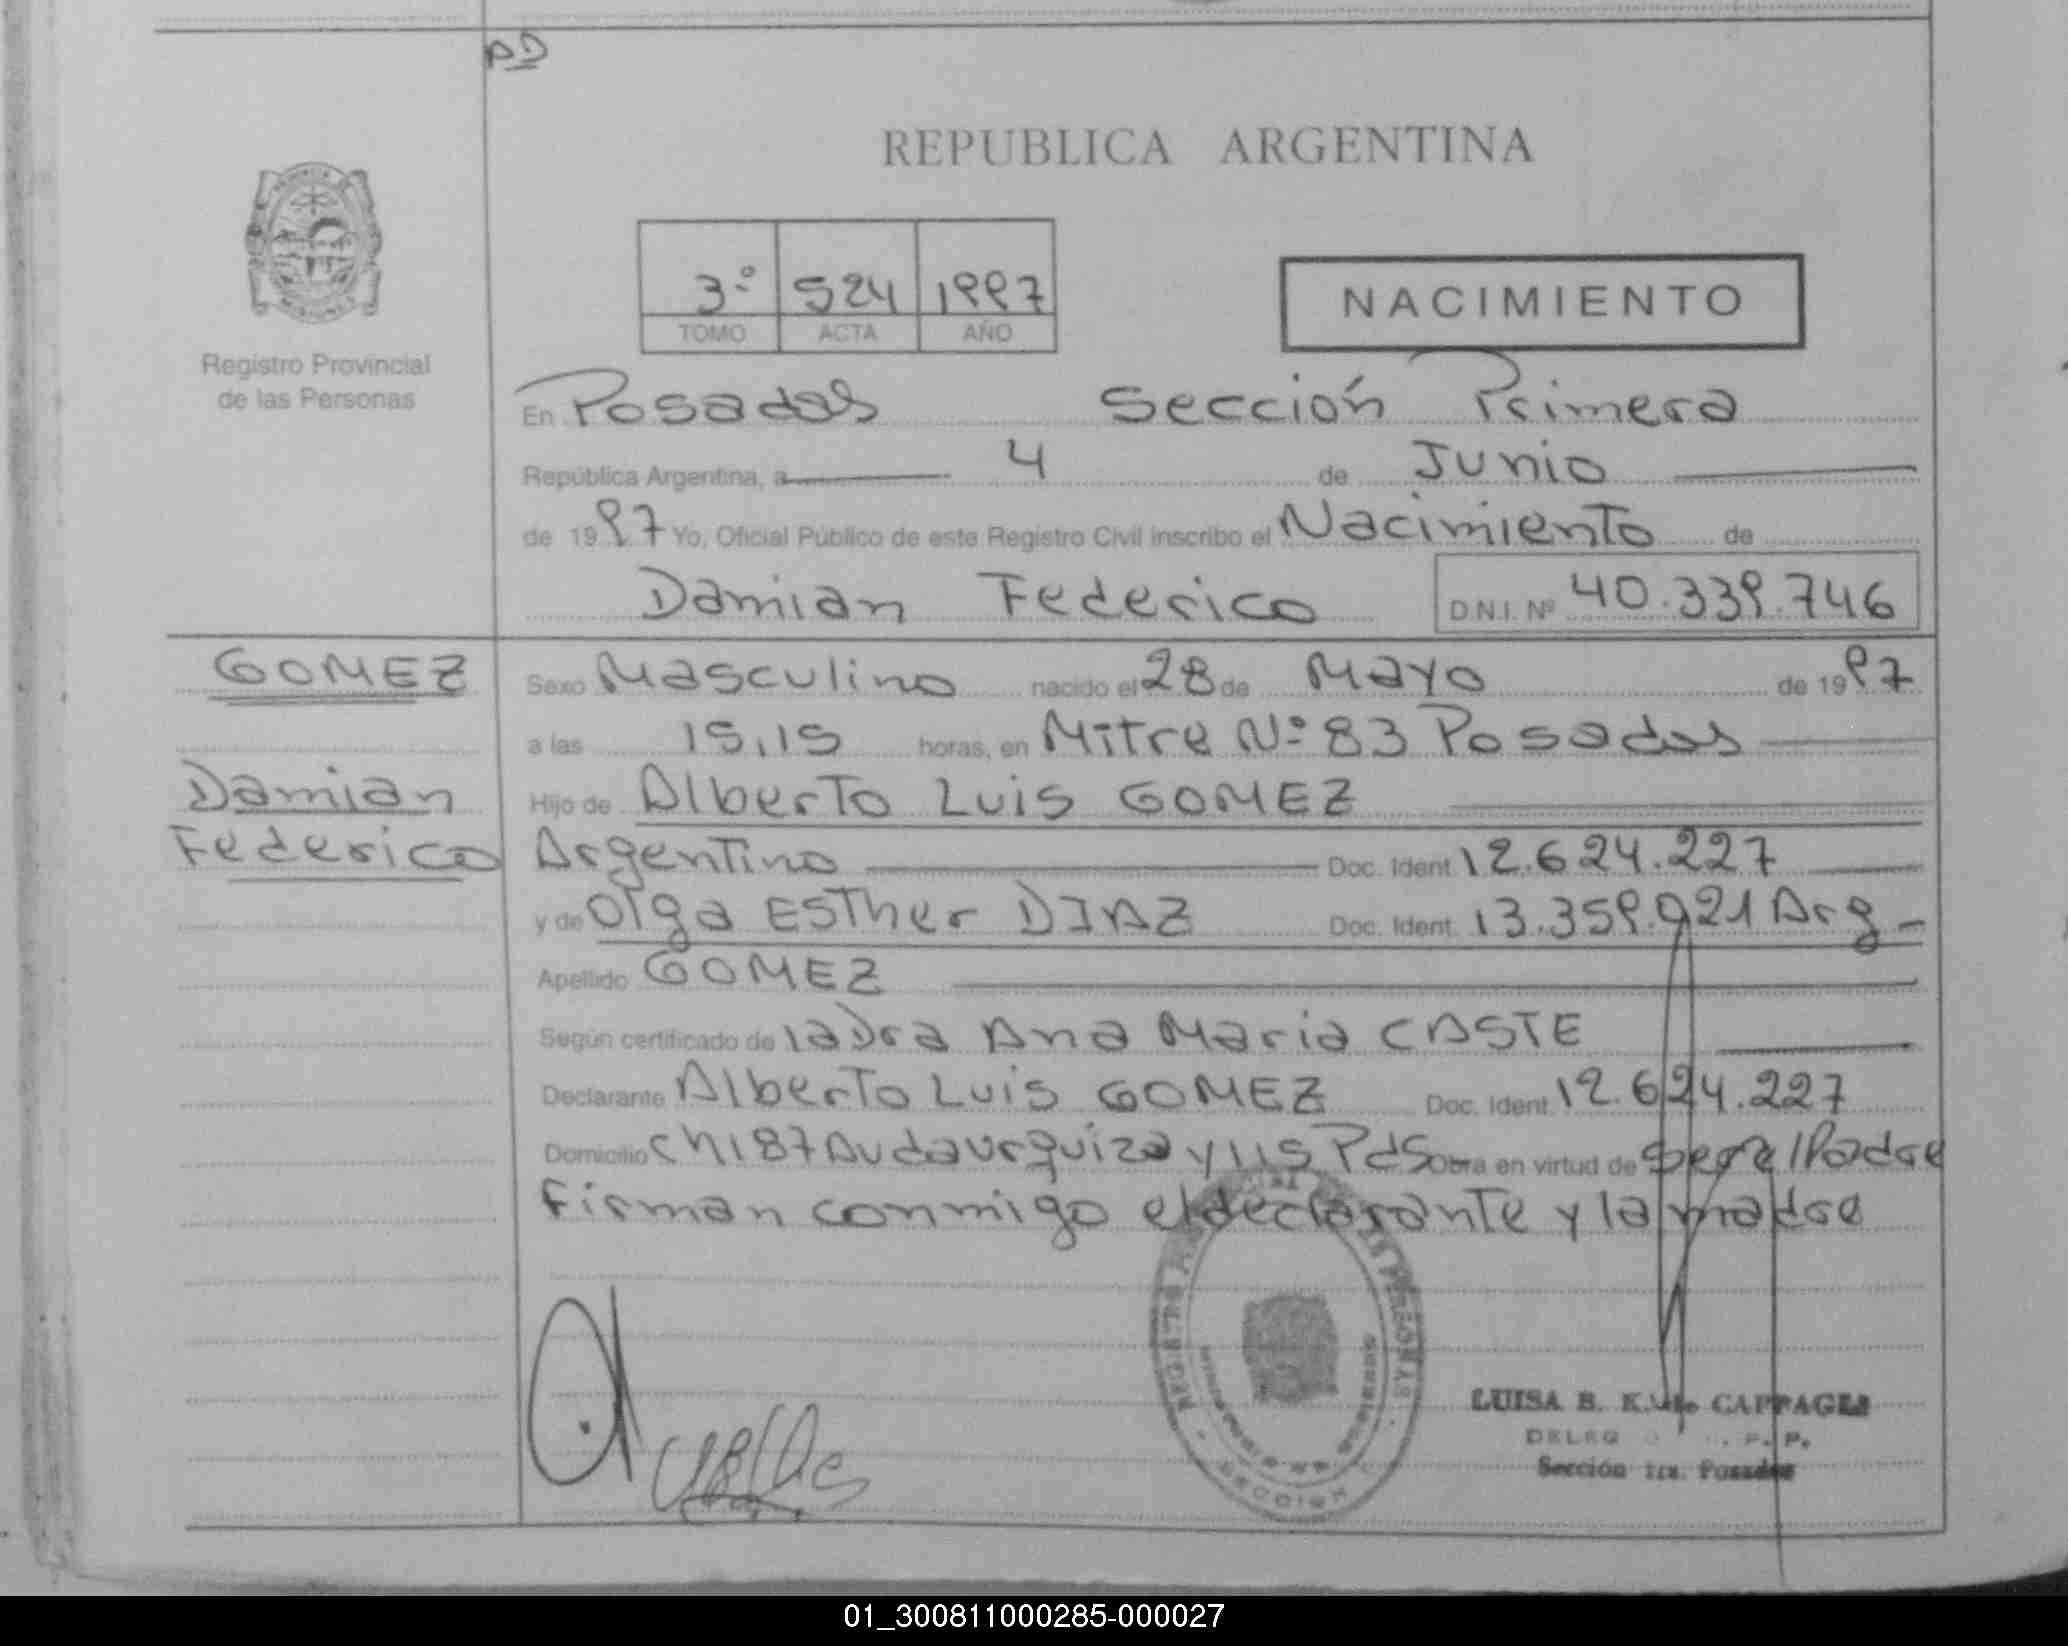 AD
REPUBLICA ARGENTINA
3º 524 1997
TOMO ACTA AÑO
NACIMIENTO
Registro Provincial
de las Personas
En Posadas Sección Primera
República Argentina, a 4 de Junio
de 1997 Yo, Oficial Público de este Registro Civil inscribo el Nacimiento de
Damian Federico D.N.I. Nº 40.339.746
GOMEZ
Damian
Federico
Sexo Masculino nacido el 28 de Mayo de 1997
a las 15,15 horas, en Mitre Nº 83 Posadas
Hijo de Alberto Luis GOMEZ
Argentino Doc. Ident. 12.624.227
y de Olga Esther DIAZ Doc. Ident. 13.359.921 Arg
Apellido GOMEZ
Según certificado de la Dra Ana Maria CASTE
Declarante Alberto Luis GOMEZ Doc. Ident. 12.624.227
Domicilio Ch 187 Avda urquiza y 115 Pds Obra en virtud de ser el Padre
Firman conmigo el declarante y la madre
LUISA B. K. de CAPPAGLI
DELEG R. P. P.
Sección 1ra. Posadas
01_300811000285-000027